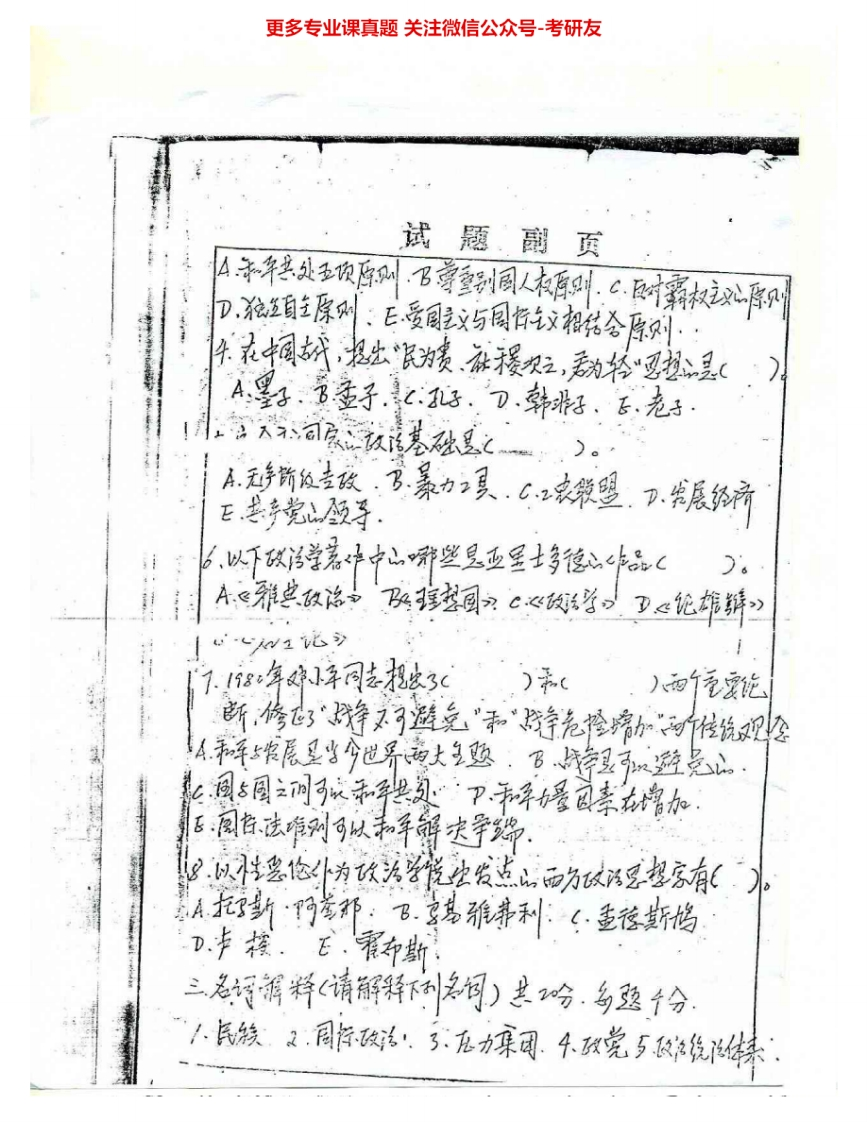 更多专业课真题 关注微信公众号-考研友
试题副页
A.和平共处五项原则. B.尊重别国人权原则. C.反对霸权主义的原则
D.独立自主原则. E.爱国主义与国际主义相结合原则.
4.在中国古代,提出"民为贵、社稷次之,君为轻"思想的是( )。
A.墨子. B.孟子. C.孔子. D.韩非子. E.老子.
政治基础是( )。
A.无产阶级专政. B.暴力工具. C.工农联盟. D.发展经济
E.共产党的领导.
6.以下政治学著作中的哪些是亚里士多德的作品( )。
A.《雅典政治》 B《理想国》 C.《政治学》 D《论雄辩》
7.1980年邓小平同志提出了( )和( )两个重要论
断,修正了"战争不可避免"和"战争危险增加"两个传统观念
A.和平与发展是当今世界两大主题. B.战争是可以避免的.
C.国与国之间可以和平共处. D.和平力量因素在增加.
E.国际法准则可以和平解决争端.
8.以性恶论作为政治学说出发点的西方政治思想家有( )。
A.托马斯·阿奎那. B.马基雅弗利. C.孟德斯鸠
D.卢梭. E.霍布斯.
三.名词解释(请解释下列名词)共20分.每题4分.
1.民族 2.国际政治. 3.压力集团. 4.政党 5.政治统治体系.